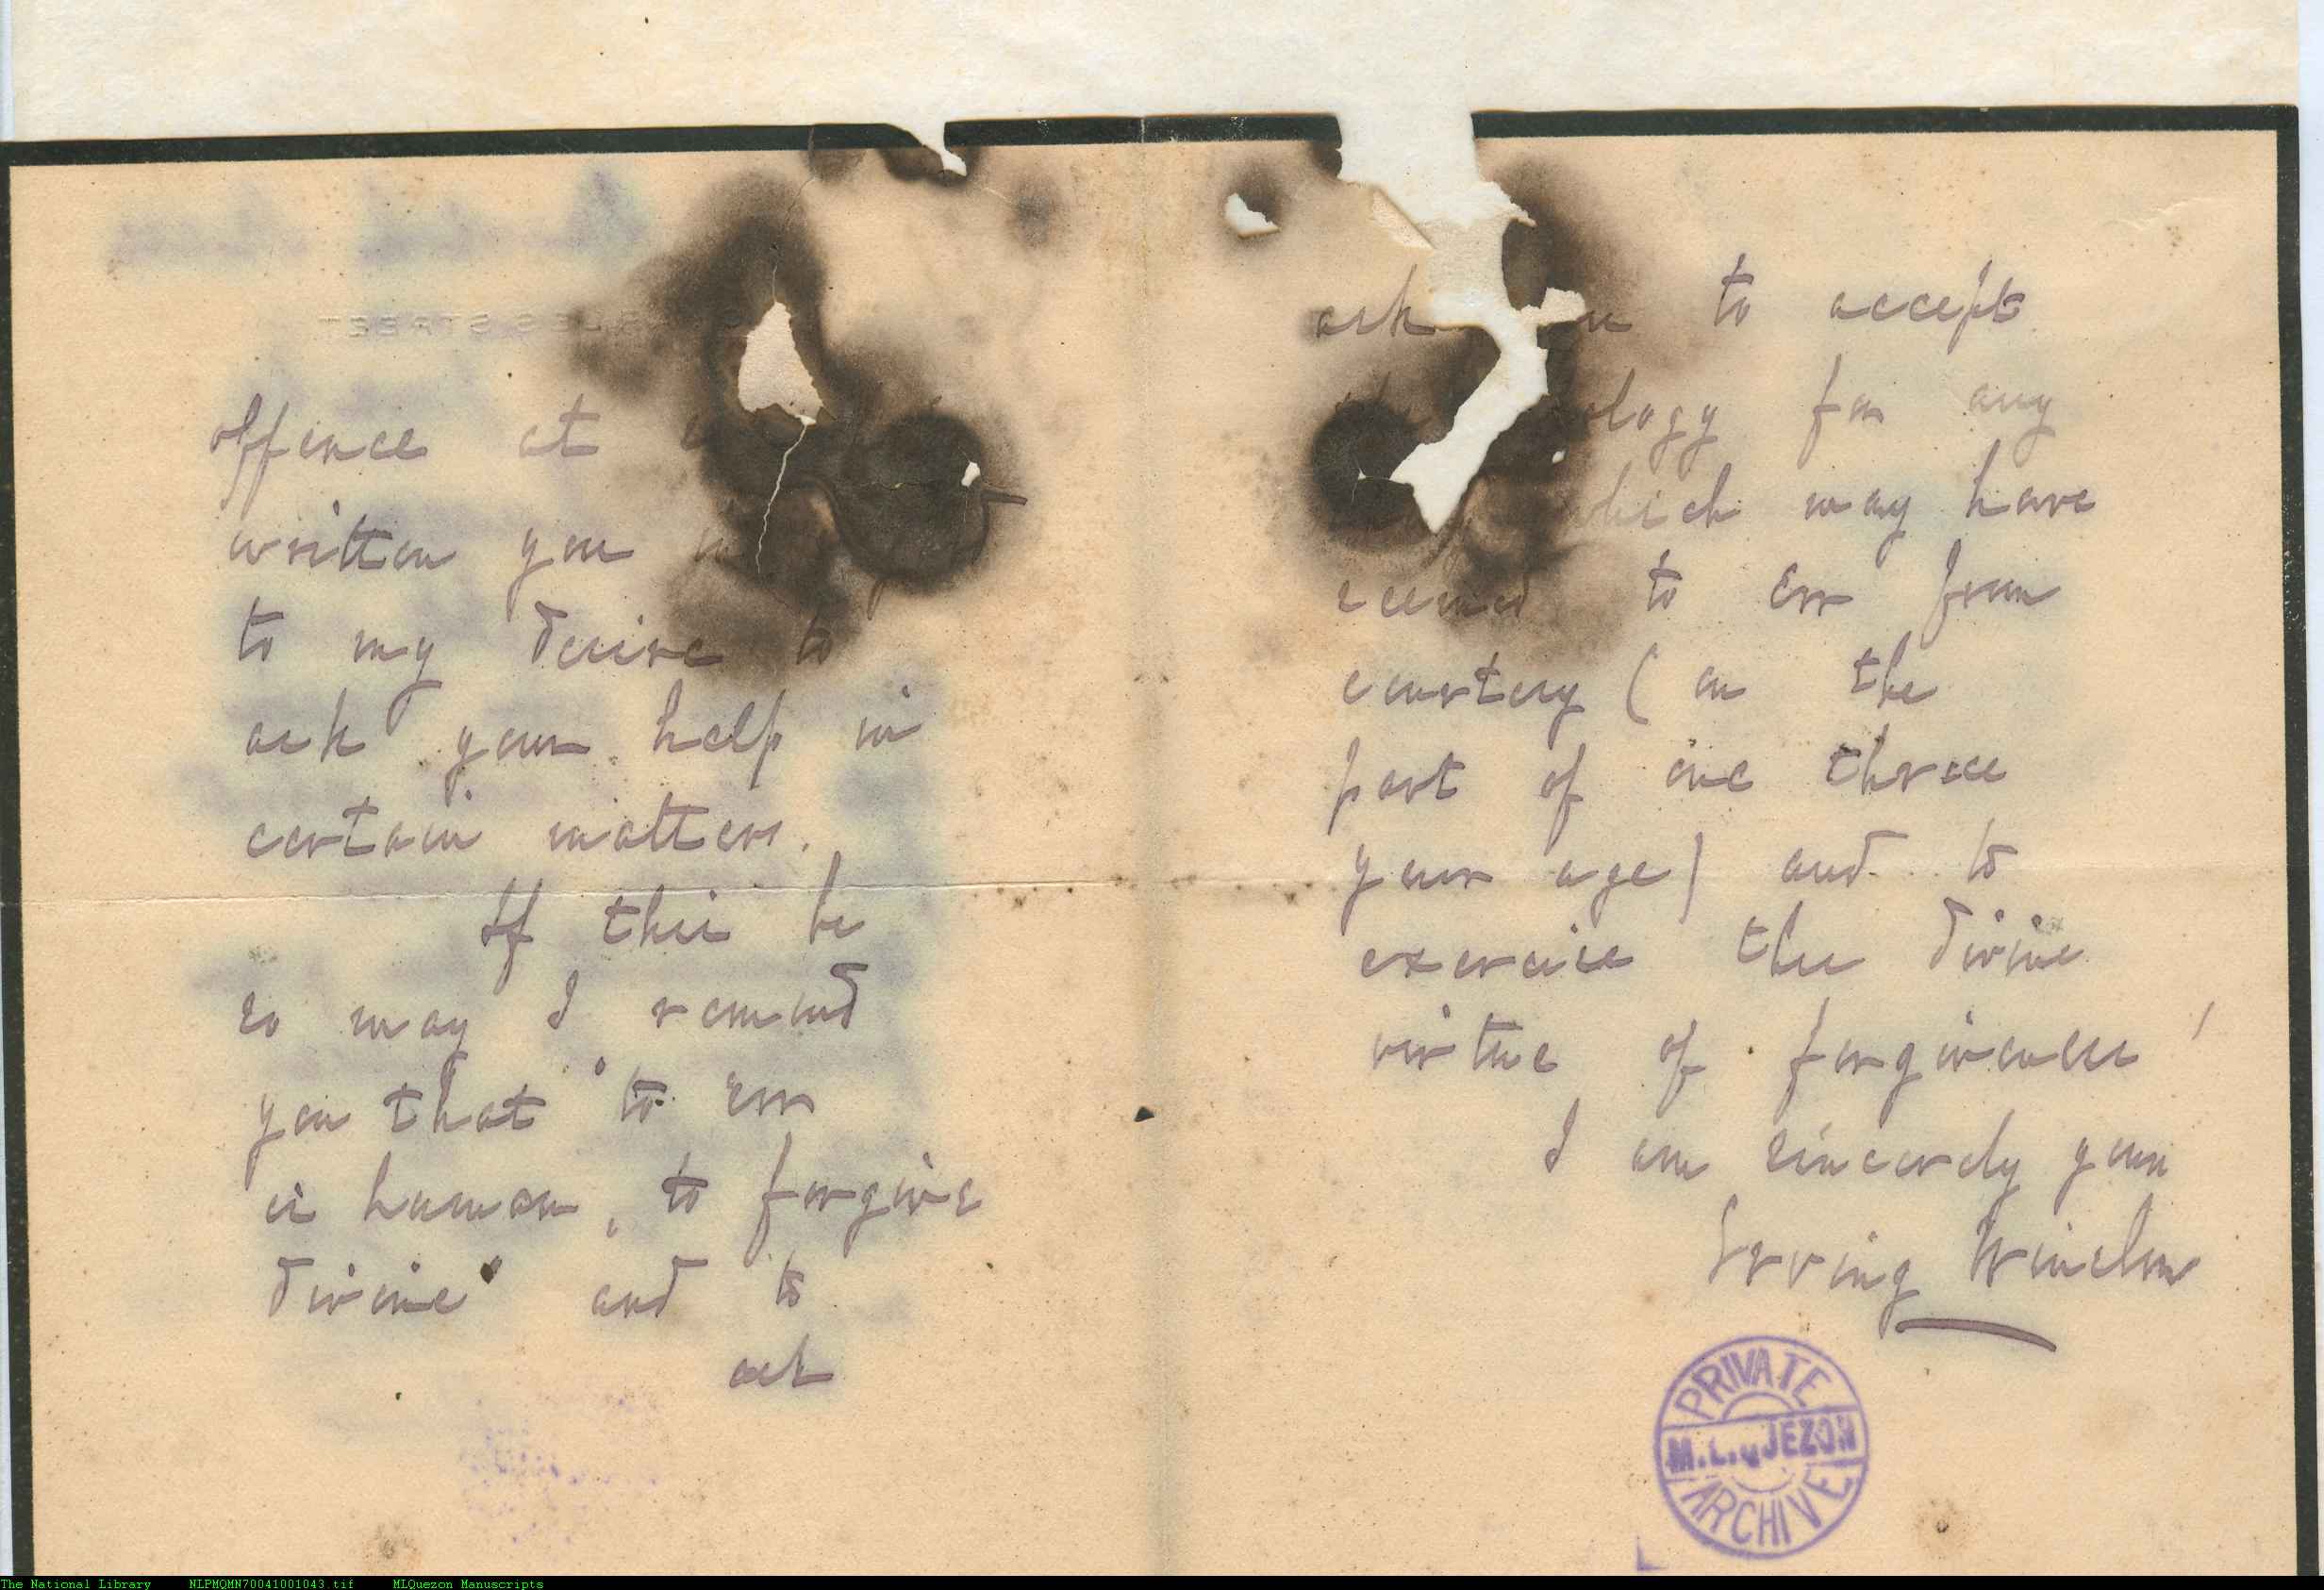 offence at
written you
to my desire to
ask your help in
certain matters.
If this be
so may I remind
you that "to err
is human, to forgive
divine" and to
ask
ask to accept
ology for any
which may have
seemed to err from
courtesy (on the
part of one thrice
your age) and to
exercise the divine
virtue of forgiveness!
I am sincerely yours
Erving Winslow
PRIVATE
M.L.QUEZON
ARCHIVE
The National Library NLPMQMN70041001043.tif MLQuezon Manuscripts